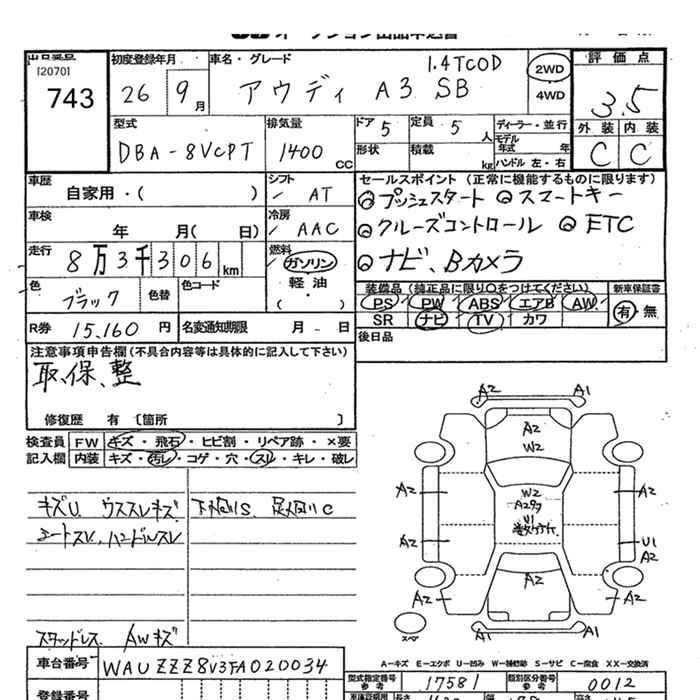 オークション出品申込書
出品番号
[2070]
743
初度登録年月
26 9月
車名・グレード
1.4TCOD
アウディ A3 SB
2WD
4WD
評価点
3.5
外装 内装
C C
型式
DBA-8VCPT
排気量
1400 CC
ドア 5
定員 5 人
形状
積載 kg
ディーラー・並行
モデル年式 年
ハンドル 左・右
車歴
自家用・( )
シフト
AT
車検
年 月( 日)
冷房
AAC
走行
8万3千306km
燃料
ガソリン
軽油
( ・ )
色
ブラック
色替
色コード
R券 15,160円
名変通知期限 月 - 日
セールスポイント (正常に機能するものに限ります)
◎プッシュスタート ◎スマートキー
◎クルーズコントロール ◎ETC
◎ナビ、Bカメラ
装備品 (純正品に限り○をつけてください)
新車保証書
PS PW ABS エアB AW
SR ナビ TV カワ
有・無
後日品
注意事項申告欄(不具合内容等は具体的に記入して下さい)
取、保、整
修復歴 有 〔箇所 〕
検査員
記入欄
FW キズ・飛石・ヒビ割・リペア跡・×要
内装 キズ・汚レ・コゲ・穴・スレ・キレ・破レ
キズU ウススレキズ 下廻りS、足廻りC
シートスレ、ハンドルスレ
スタッドレス AWキズ
A2 A1
A2
W2
A2 A2
W2
A2
U1
A2 U1
A2
A2
A2 A2
A1 A1
スペア
A-キズ E-エクボ U-凹み W-補修跡 S-サビ C-腐食 XX-交換済
車台番号
WAUZZZ8V3FA020034
登録番号
型式指定番号
参考
17581
類別区分番号
参考
0012
車庫証明用
長さ
幅
高さ